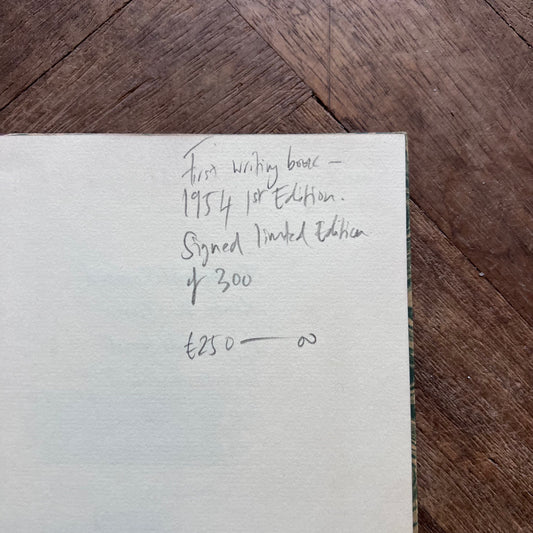 First writing book —
1954 1st Edition.
Signed limited Edition
of 300
£250 — 00